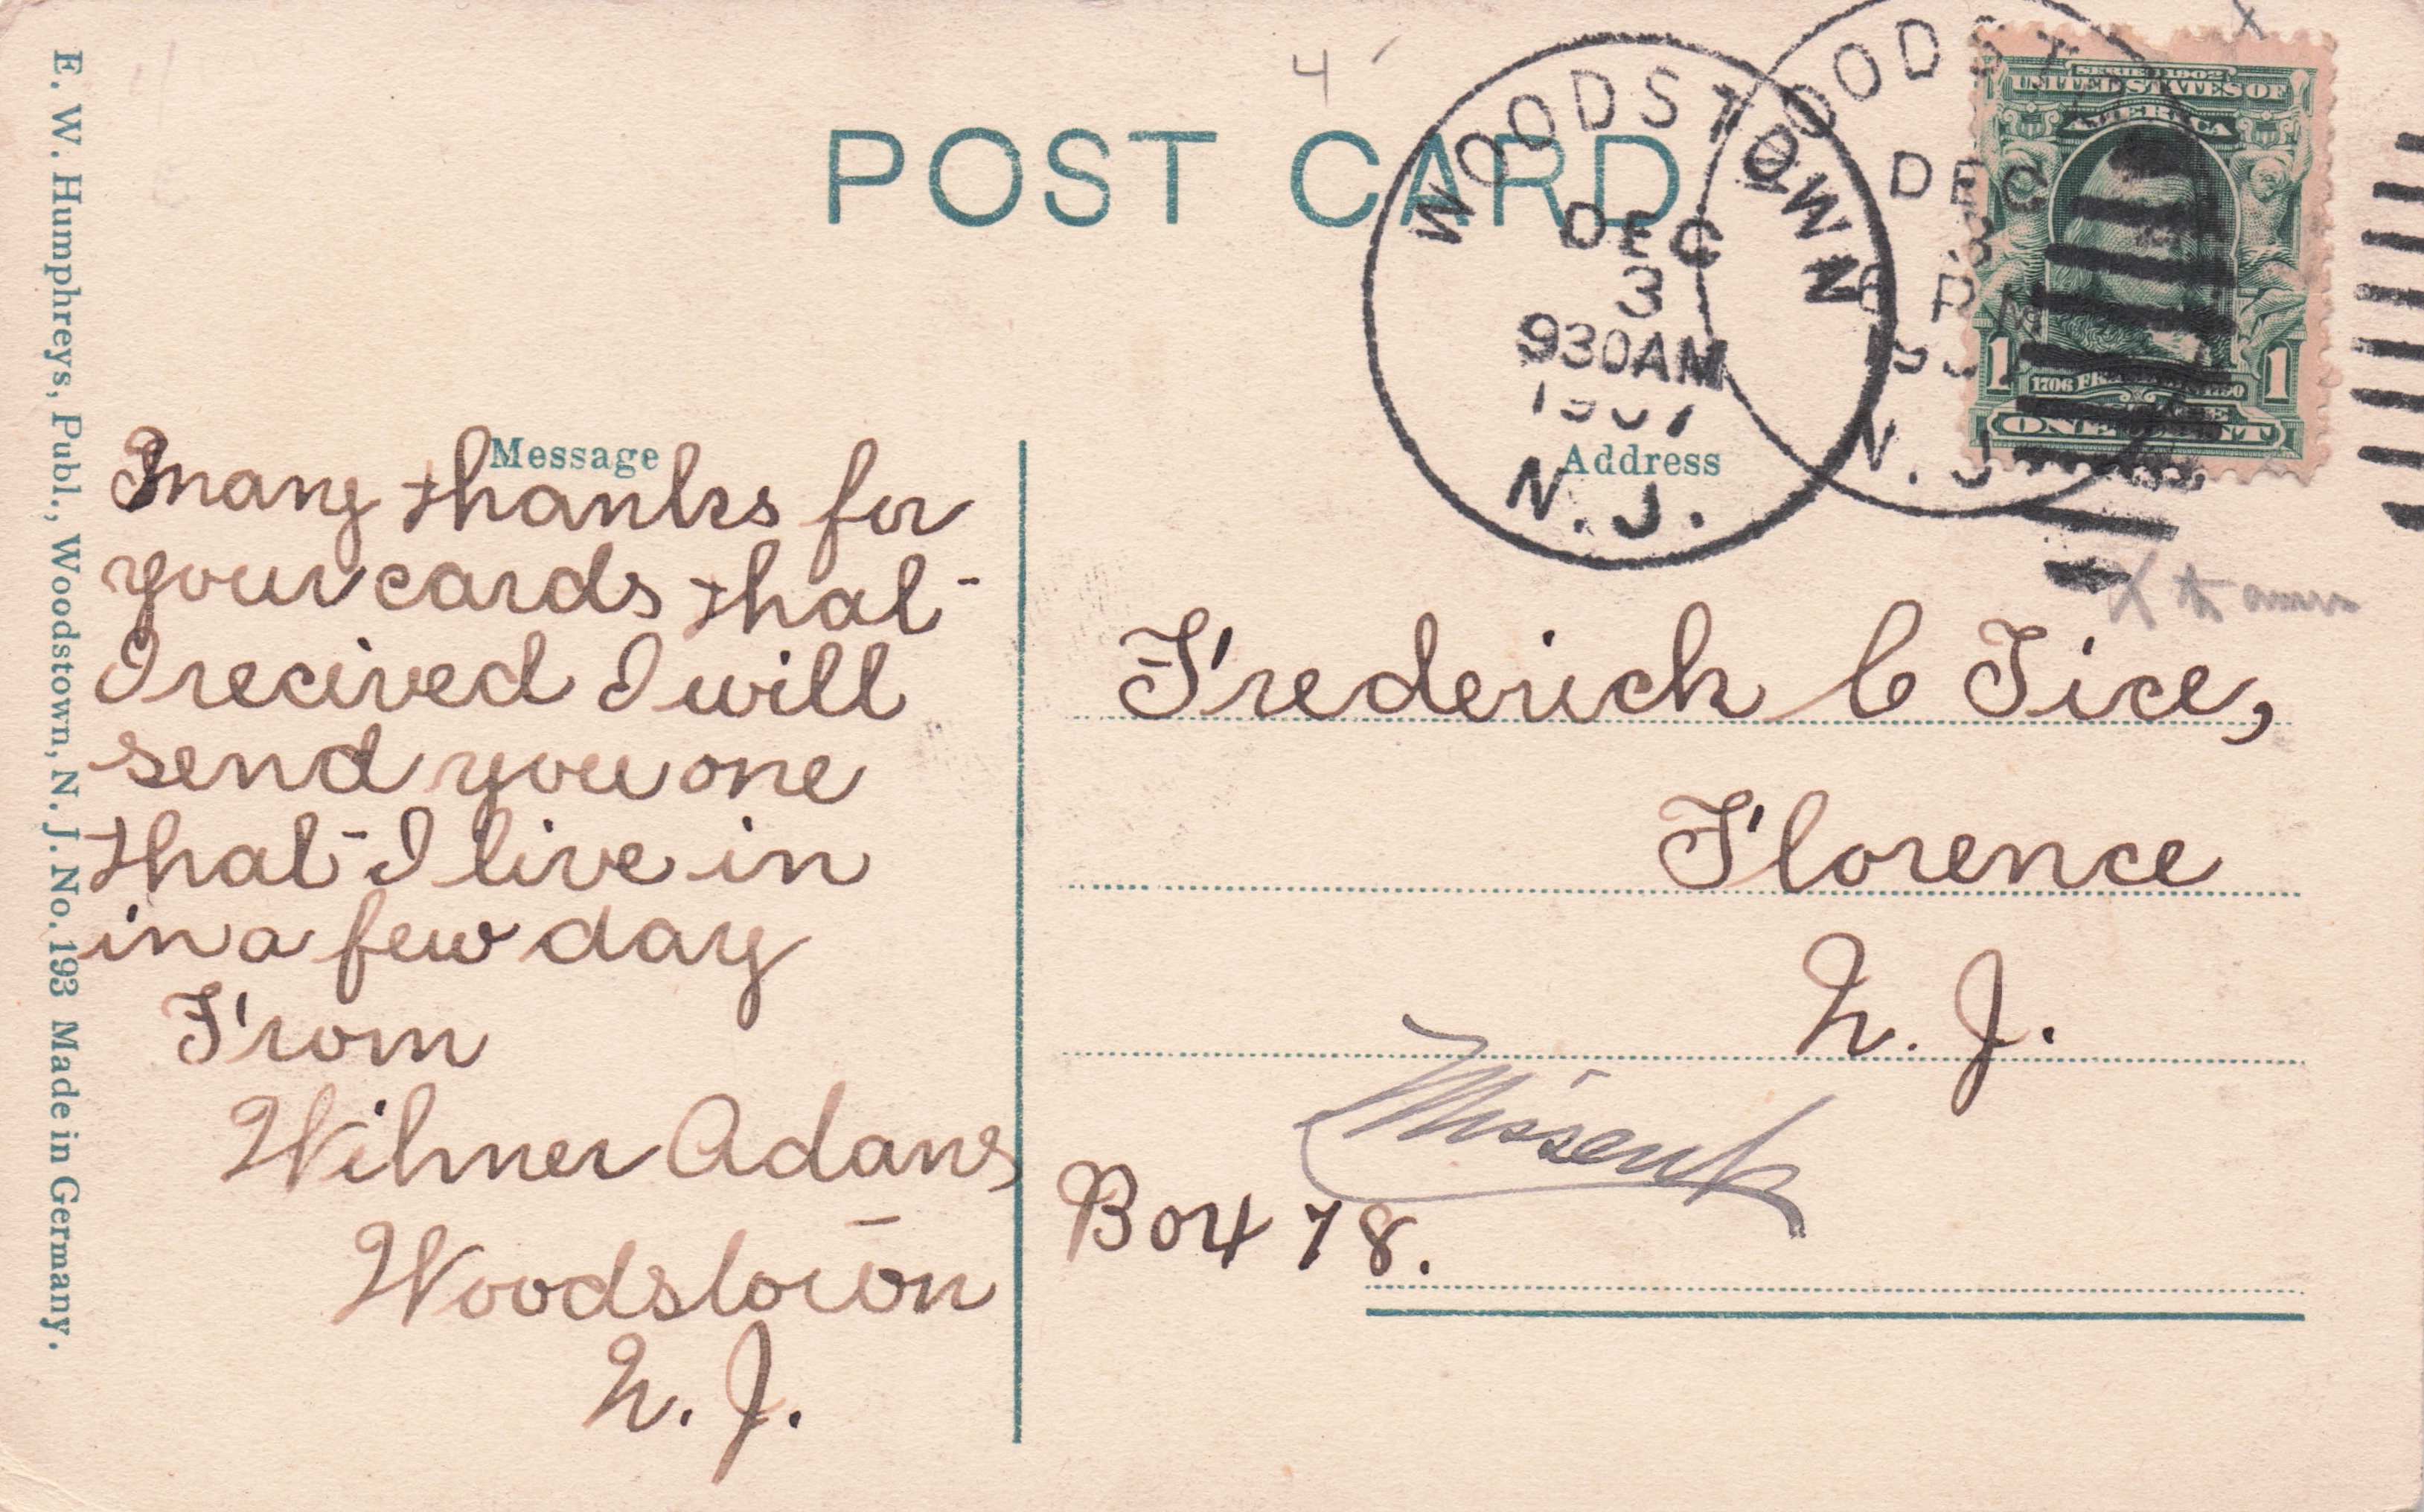 E. W. Humphreys, Publ., Woodstown, N. J. No. 193 Made in Germany.
4
POST CARD
WOODSTOWN
DEC
3
930AM
1907
N. J.
WOODST
DEC
3
6 PM
N. J.
SERIES 1902
UNITED STATES OF
AMERICA
1 1
1706 FRANKLIN 1790
ONE CENT
Message
Many thanks for
your cards that
I recived I will
send you one
that I live in
in a few day
From
Wilmer Adams
Woodstown
N. J.
Address
Frederick C Tice,
Florence
N. J.
Missent
Box 78.